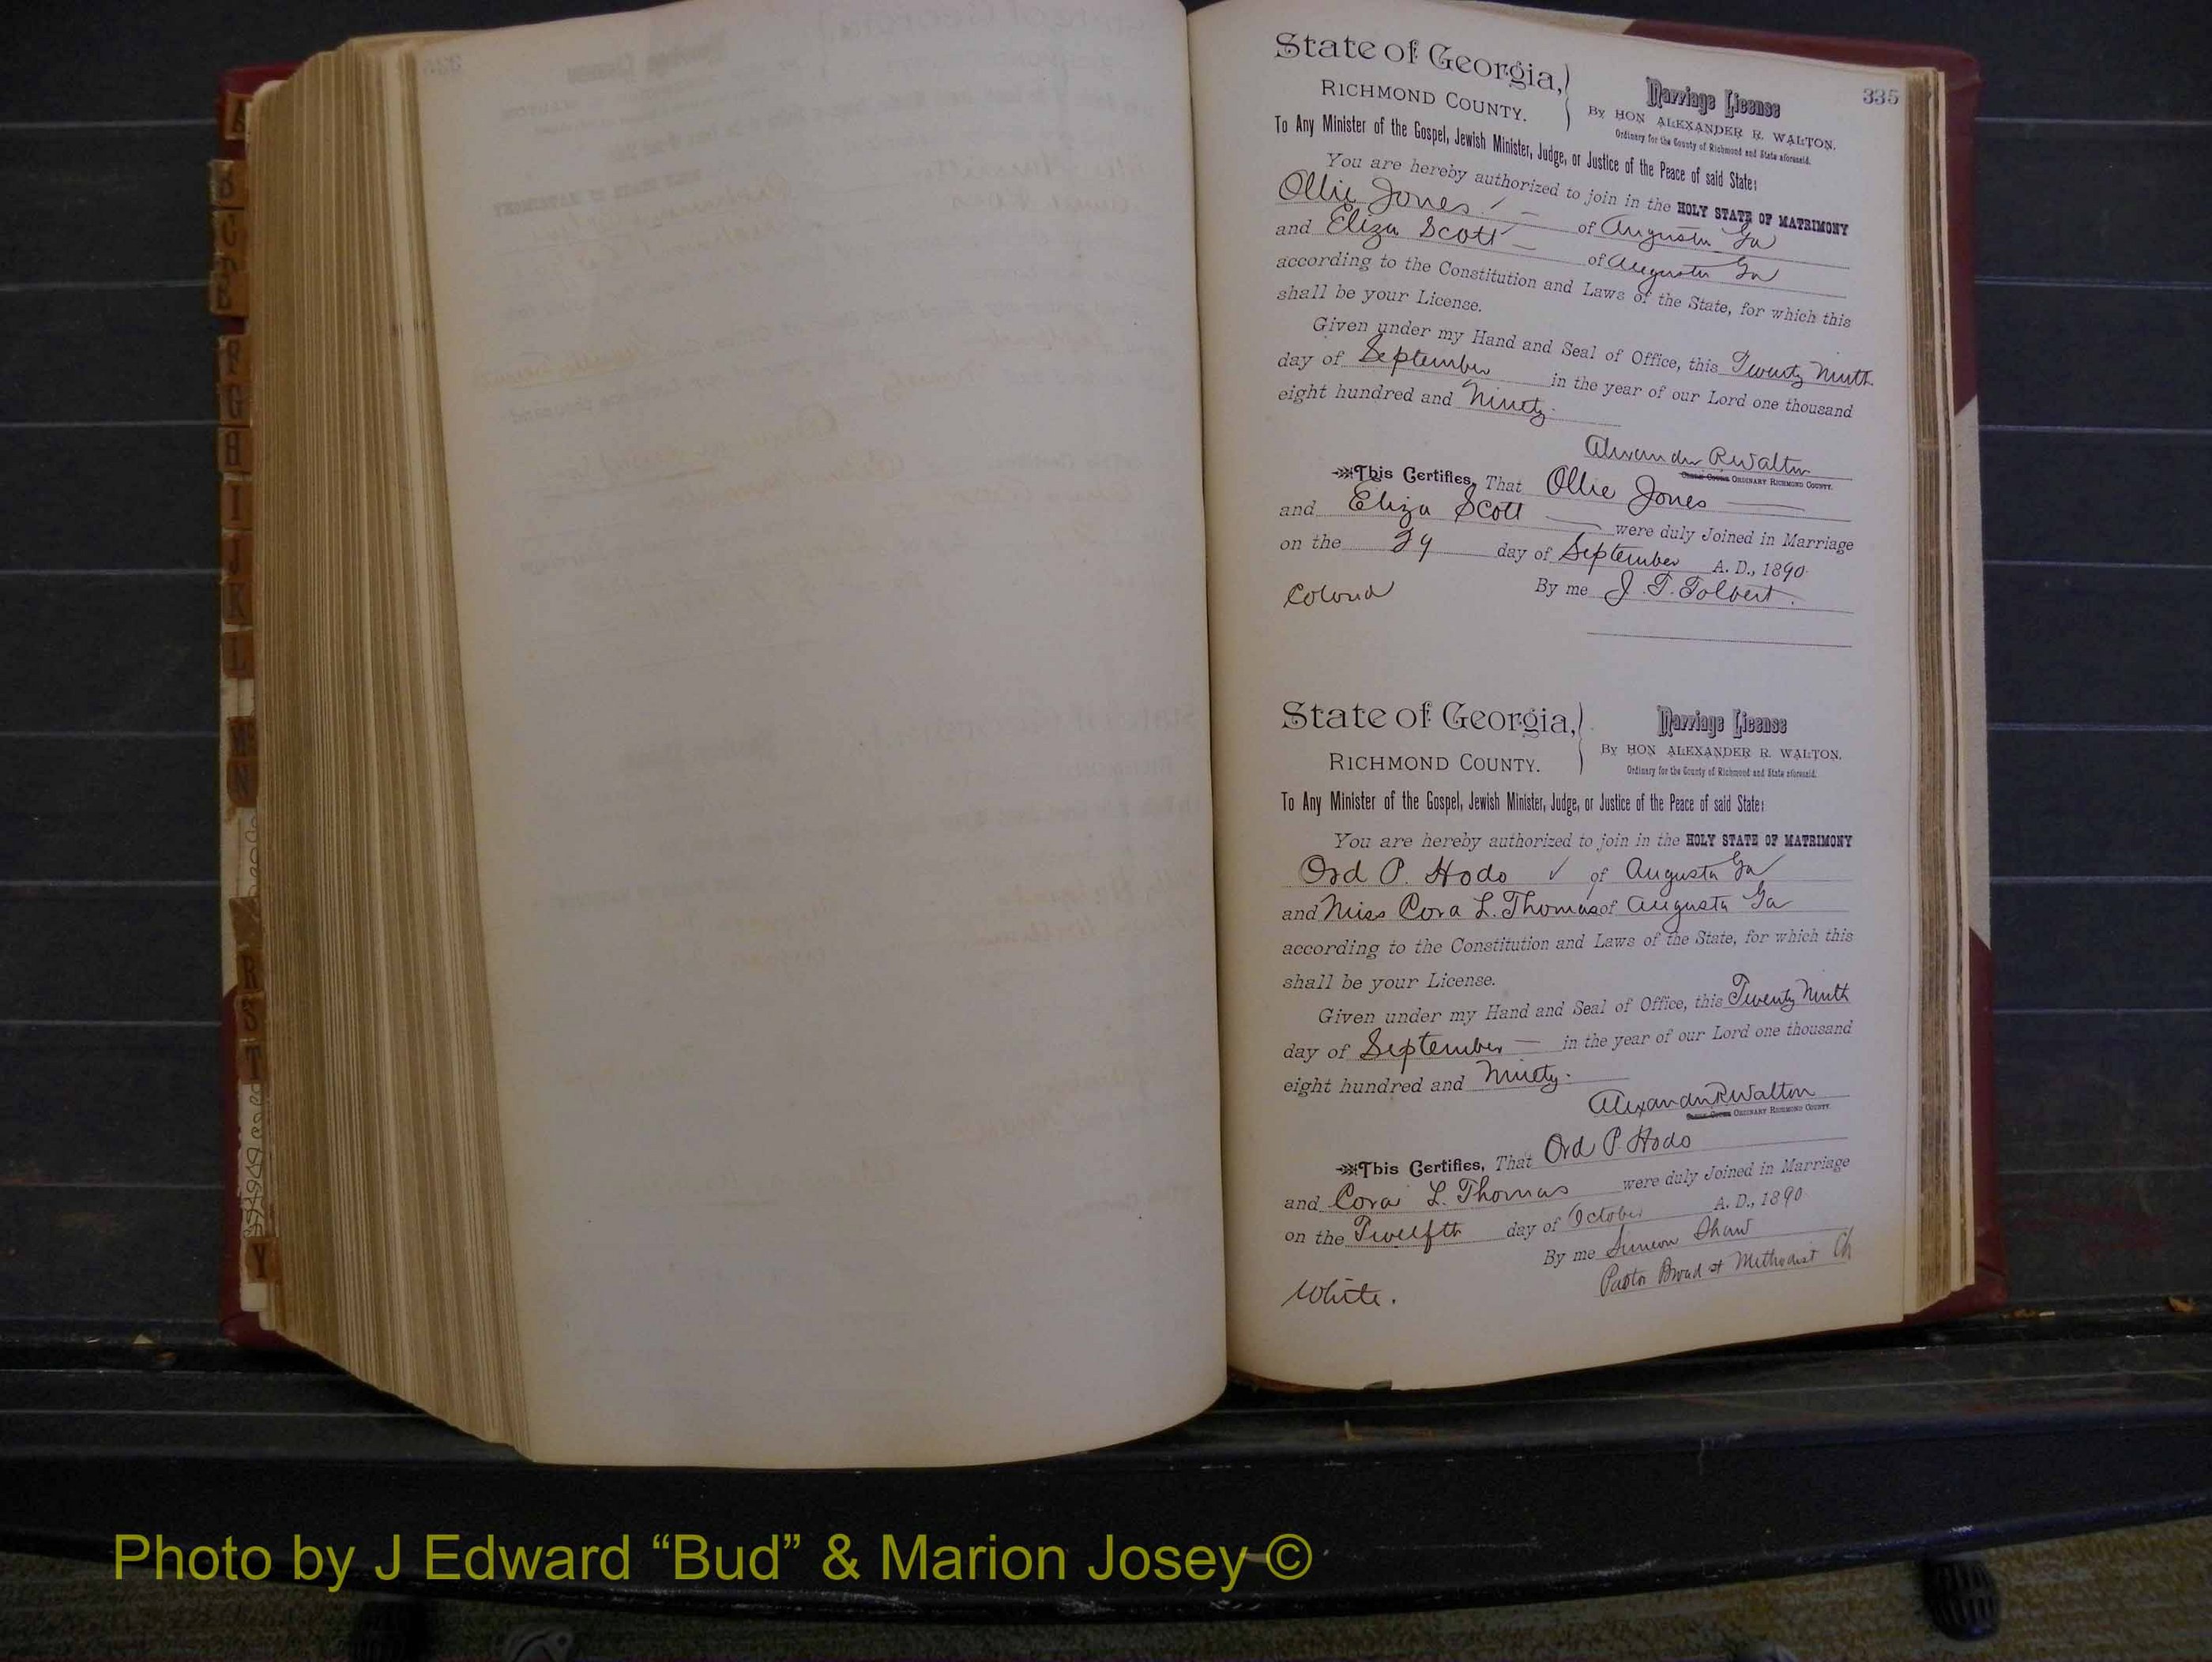 335
State of Georgia,
RICHMOND COUNTY.
Marriage License
By HON ALEXANDER R. WALTON,
Ordinary for the County of Richmond and State aforesaid.
To Any Minister of the Gospel, Jewish Minister, Judge, or Justice of the Peace of said State:
You are hereby authorized to join in the HOLY STATE OF MATRIMONY
Ollie Jones of Augusta Ga
and Eliza Scott of Augusta Ga
according to the Constitution and Laws of the State, for which this
shall be your License.
Given under my Hand and Seal of Office, this Twenty Ninth
day of September in the year of our Lord one thousand
eight hundred and Ninety.
Alexander R Walton
ORDINARY RICHMOND COUNTY.
This Certifies, That Ollie Jones
and Eliza Scott were duly Joined in Marriage
on the 29 day of September A. D., 1890
Colored By me J. T. Tolbert.
State of Georgia,
RICHMOND COUNTY.
Marriage License
By HON ALEXANDER R. WALTON,
Ordinary for the County of Richmond and State aforesaid.
To Any Minister of the Gospel, Jewish Minister, Judge, or Justice of the Peace of said State:
You are hereby authorized to join in the HOLY STATE OF MATRIMONY
Ord P. Hodo ✓ of Augusta Ga
and Miss Cora L. Thomas of Augusta Ga
according to the Constitution and Laws of the State, for which this
shall be your License.
Given under my Hand and Seal of Office, this Twenty Ninth
day of September — in the year of our Lord one thousand
eight hundred and Ninety.
Alexander R Walton
ORDINARY RICHMOND COUNTY.
This Certifies, That Ord P. Hodo
and Cora L. Thomas were duly Joined in Marriage
on the Twelfth day of October A. D., 1890
By me Simeon Shaw
Pastor Broad st Methodist Ch
White.
B
C
F
G
H
I
J
K
L
N
R
S
T
Y
Photo by J Edward “Bud” & Marion Josey ©